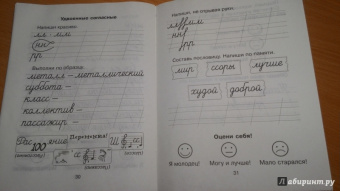 Удвоенные согласные
Напиши красиво.
лл мм
нн
рр
Выполни по образцу.
металл – металлический
суббота –
класс –
коллектив –
пассажир –
Рас 100 ение
30
Напиши, не отрывая руки.
лл мм
нн
рр
Составь пословицу. Напиши по памяти.
мир ссоры лучше
худой доброй
Оцени себя!
Я молодец! Могу и лучше! Мало старался!
31
лабиринт.ру